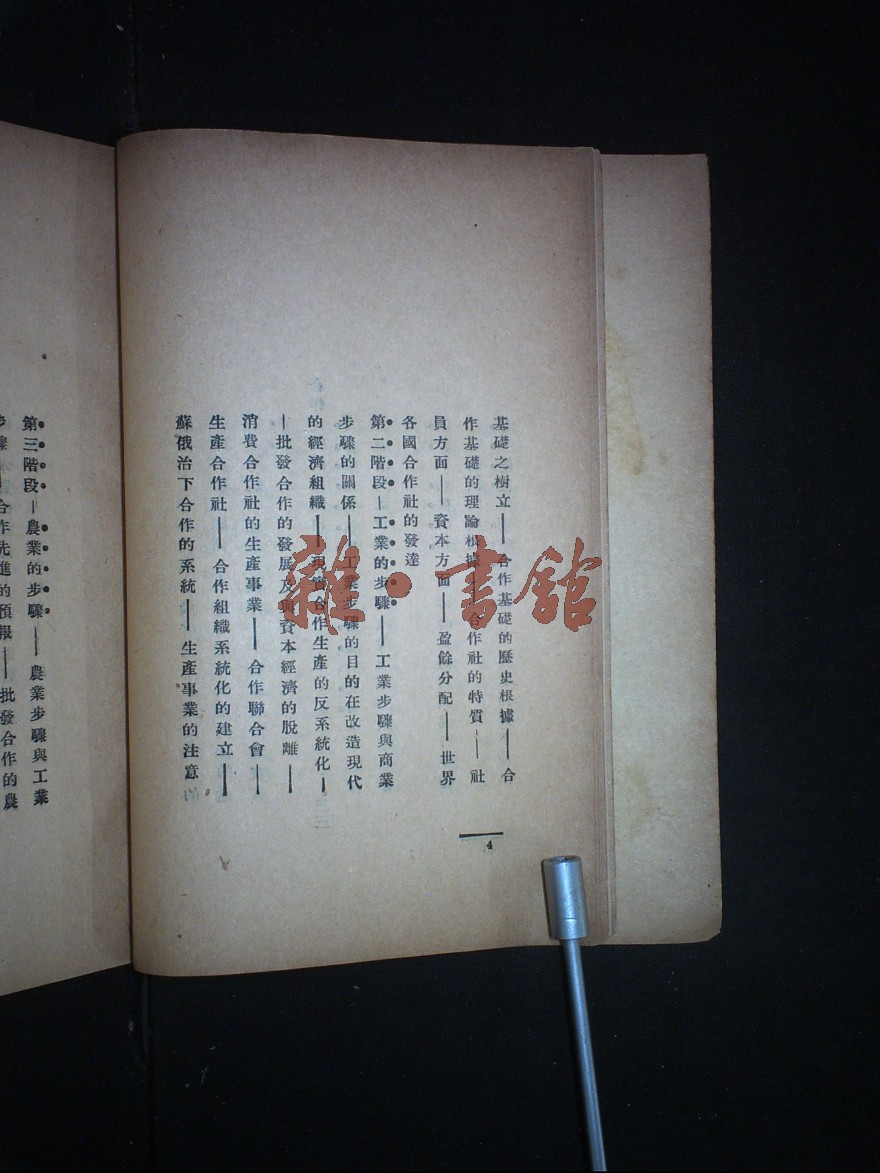 基礎之樹立——合作基礎的歷史根據——合
作基礎的理論根據——合作社的特質——社
員方面——資本方面——盈餘分配——世界
各國合作社的發達
第二階段—工業的步驟——工業步驟與商業
步驟的關係——工業步驟的目的在改造現代
的經濟組織——現實合作生產的反系統化—
—批發合作的發展及與資本經濟的脫離——
消費合作社的生產事業——合作聯合會——
生產合作社——合作組織系統化的建立——
蘇俄治下合作的系統——生產事業的注意
4
第三階段—農業的步驟——農業步驟與工業
步驟——合作先進的預報——批發合作的農
雜·書館